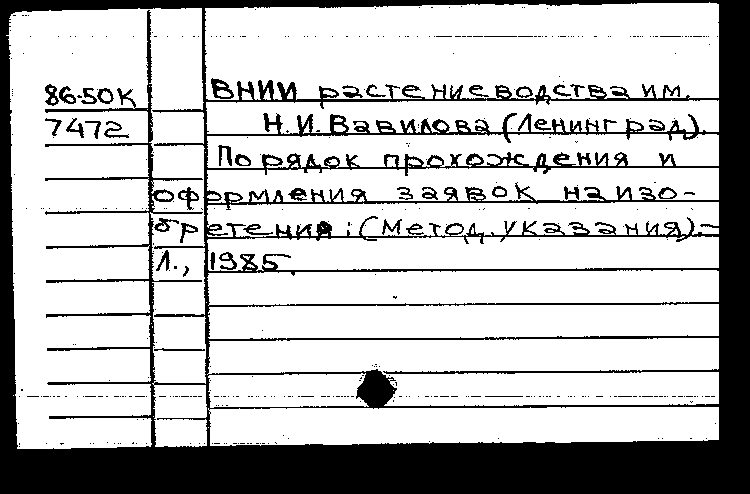 86-50К ВНИИ растениеводства им.
7472 Н.И.Вавилова (Ленинград).
Порядок прохождения и
оформления заявок на изо-
бретения: (Метод. указания).-
Л., 1985.